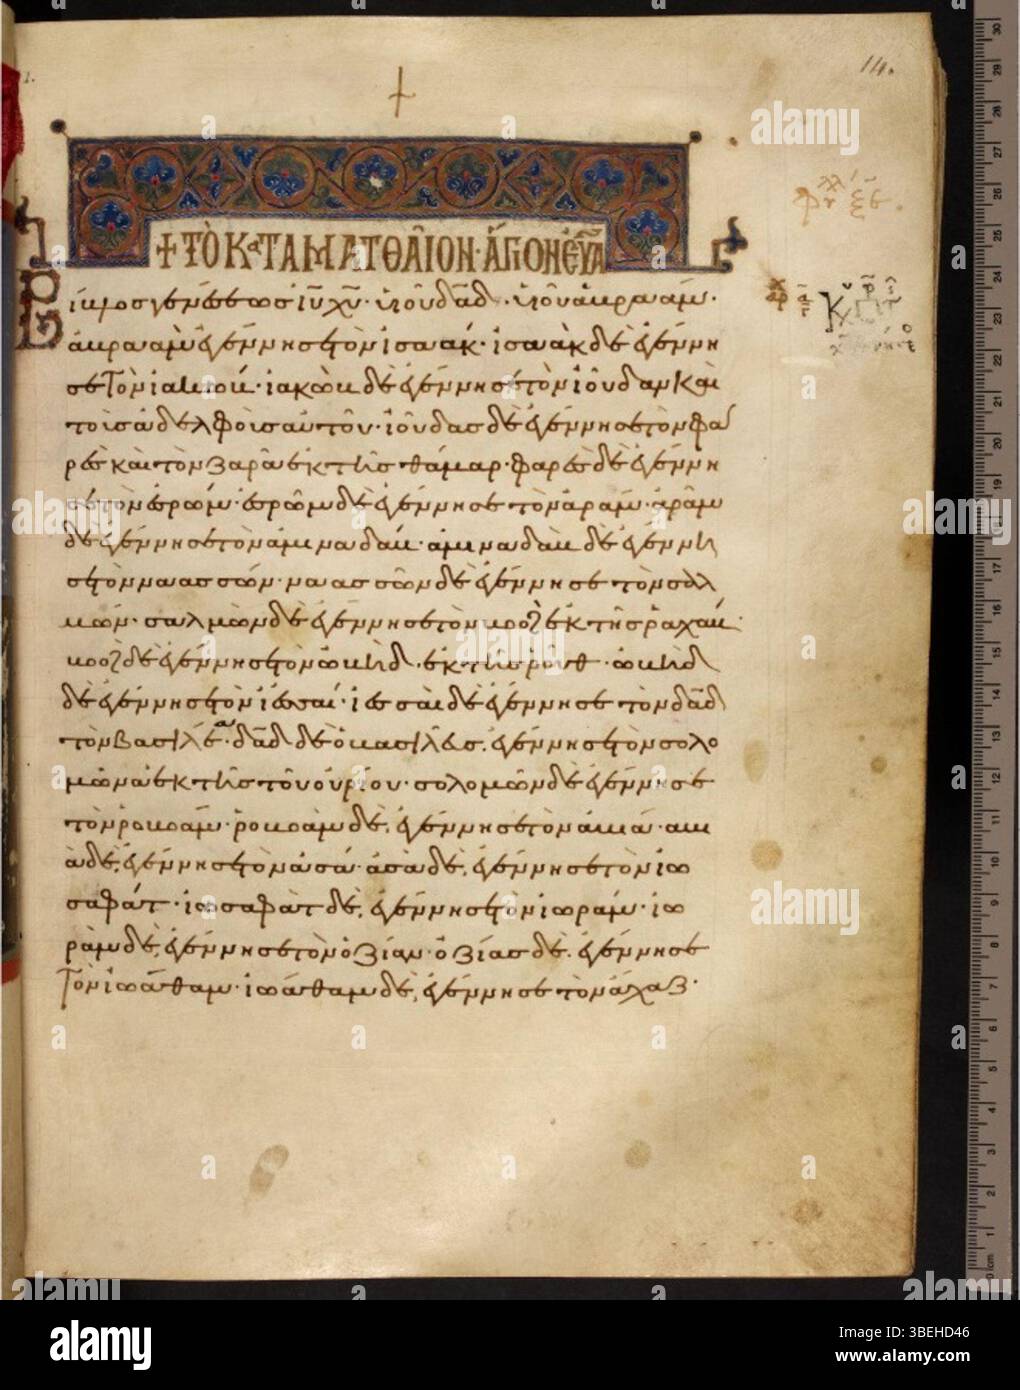 14.
✝ ΤῸ ΚΑΤΑ ΜΑΤΘΑῖΟΝ · ἉΓΙΟΝ ΕΥΑ
Βίβλος γενέσεως ἰῦ χῦ · υἱοῦ δᾱδ · υἱοῦ ἀβραάμ ·
ἀβραὰμ ἐγέννησε τὸν ἰσαάκ · ἰσαὰκ δὲ ἐγέννη
σε τὸν ἰακώβ · ἰακὼβ δὲ ἐγέννησε τὸν ἰούδαν καὶ
τοὺς ἀδελφοὺς αὐτοῦ · ἰούδας δὲ ἐγέννησε τὸν φα
ρὲς καὶ τὸν ζαρὰ ἐκ τῆς θάμαρ · φαρὲς δὲ ἐγέννη
σε τὸν ἐσρώμ · ἐσρὼμ δὲ ἐγέννησε τὸν ἀράμ · ἀρὰμ
δὲ ἐγέννησε τὸν ἀμιναδάβ · ἀμιναδὰβ δὲ ἐγέννη
σε τὸν ναασσών · ναασσὼν δὲ ἐγέννησε τὸν σαλ
μών · σαλμὼν δὲ ἐγέννησε τὸν βοὸζ ἐκ τῆς ῥαχάβ ·
βοὸζ δὲ ἐγέννησε τὸν ὠβὴδ · ἐκ τῆς ῥούθ · ὠβὴδ
δὲ ἐγέννησε τὸν ἰεσσαί · ἰεσσαὶ δὲ ἐγέννησε τὸν δᾱδ
τὸν βασιλέα · δᾱδ δὲ ὁ βασιλεὺς, ἐγέννησε τὸν σολο
μῶνα ἐκ τῆς τοῦ οὐρίου · σολομὼν δὲ ἐγέννησε
τὸν ῥοβοάμ · ῥοβοὰμ δὲ, ἐγέννησε τὸν ἀβιά · ἀβι
ὰ δὲ, ἐγέννησε τὸν ἀσά · ἀσὰ δὲ, ἐγέννησε τὸν ἰω
σαφάτ · ἰωσαφὰτ δὲ, ἐγέννησε τὸν ἰωράμ · ἰω
ρὰμ δὲ, ἐγέννησε τὸν ὀζίαν · ὀζίας δὲ, ἐγέννησε
τὸν ἰωάθαμ · ἰωάθαμ δὲ, ἐγέννησε τὸν ἄχαζ ·
alamy
Image ID: 3BEHD46
www.alamy.com